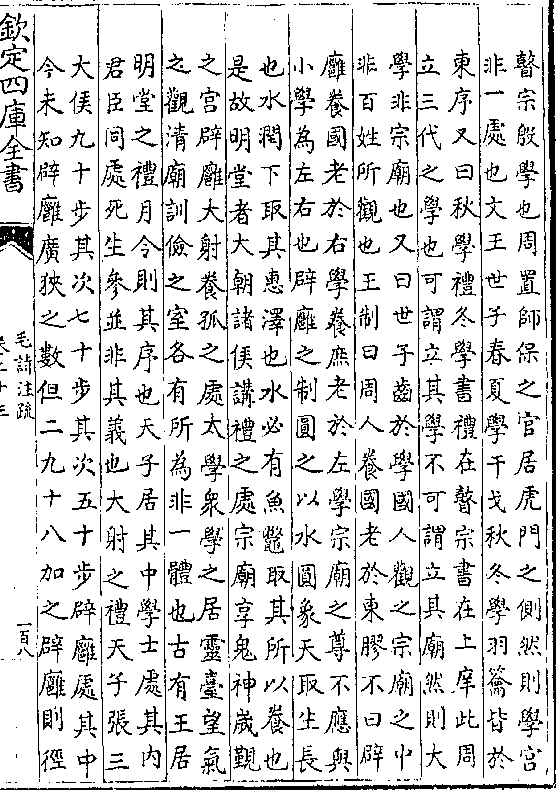 瞽宗殷學也周置師保之官居虎門之側然則學宫
非一處也文王世子春夏學干戈秋冬學羽籥皆於
東序又曰秋學禮冬學書禮在瞽宗書在上庠此周
立三代之學也可謂立其學不可謂立其廟然則大
學非宗廟也又曰世子齒於學國人觀之宗廟之中
非百姓所觀也王制曰周人養國老於東膠不曰辟
廱養國老於右學養庶老於左學宗廟之尊不應與
小學為左右也辟廱之制圓之以水圓象天取生長
也水潤下取其惠澤也水必有魚鼈取其所以養也
是故明堂者大朝諸侯講禮之處宗廟享鬼神歲覲
之宫辟廱大射養孤之處太學衆學之居靈臺望氣
之觀清廟訓儉之室各有所為非一體也古有王居
明堂之禮月令則其序也天子居其中學士處其内
君臣同處死生參並非其義也大射之禮天子張三
大侯九十步其次七十步其次五十步辟廱處其中
今未知辟廱廣狹之數但二九十八加之辟廱則徑
欽定四庫全書
毛詩注疏
卷二十三
一百八